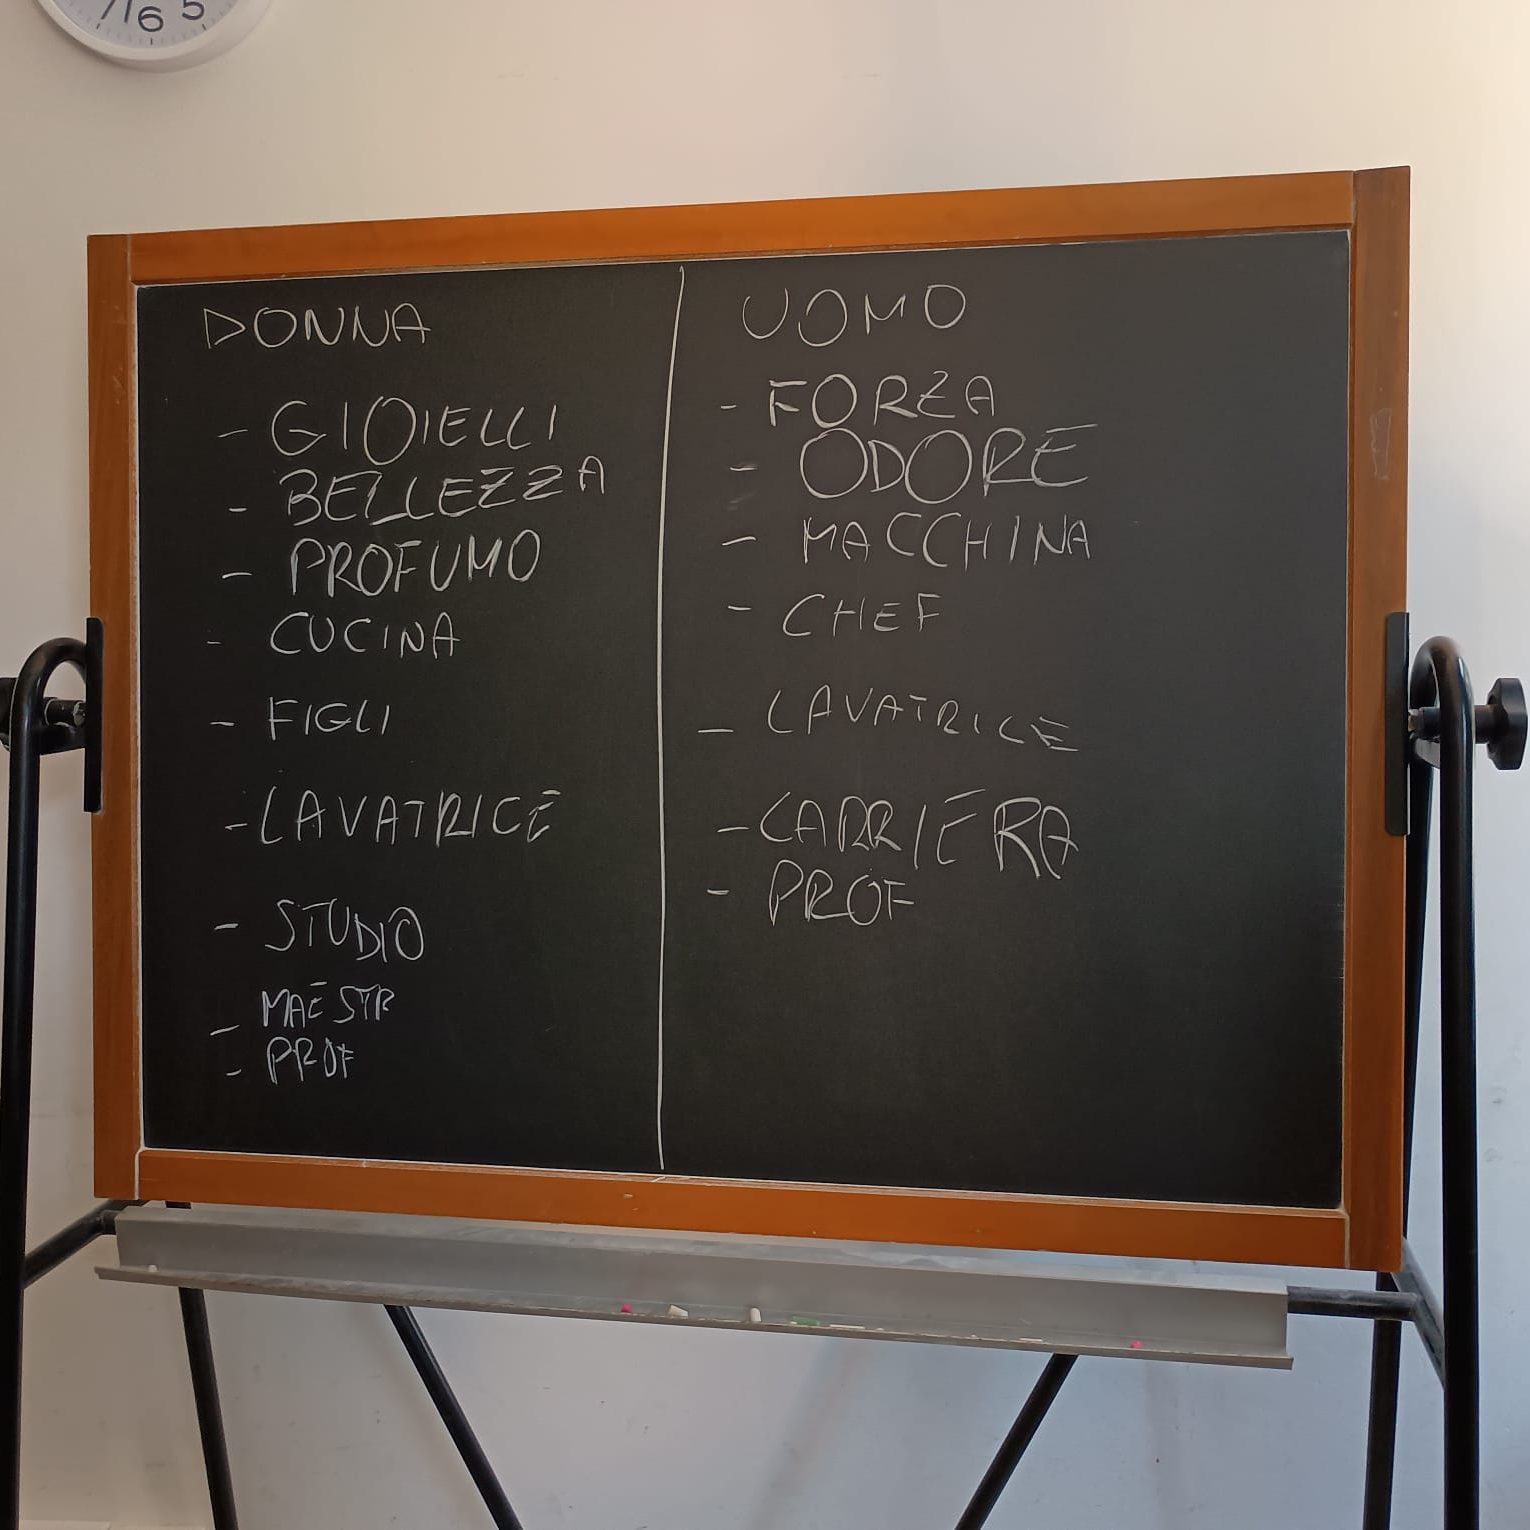 7 6 5
DONNA
- GIOIELLI
- BELLEZZA
- PROFUMO
- CUCINA
- FIGLI
- LAVATRICE
- STUDIO
- MAESTR
- PROF
UOMO
- FORZA
- ODORE
- MACCHINA
- CHEF
- LAVATRICE
- CARRIERA
- PROF